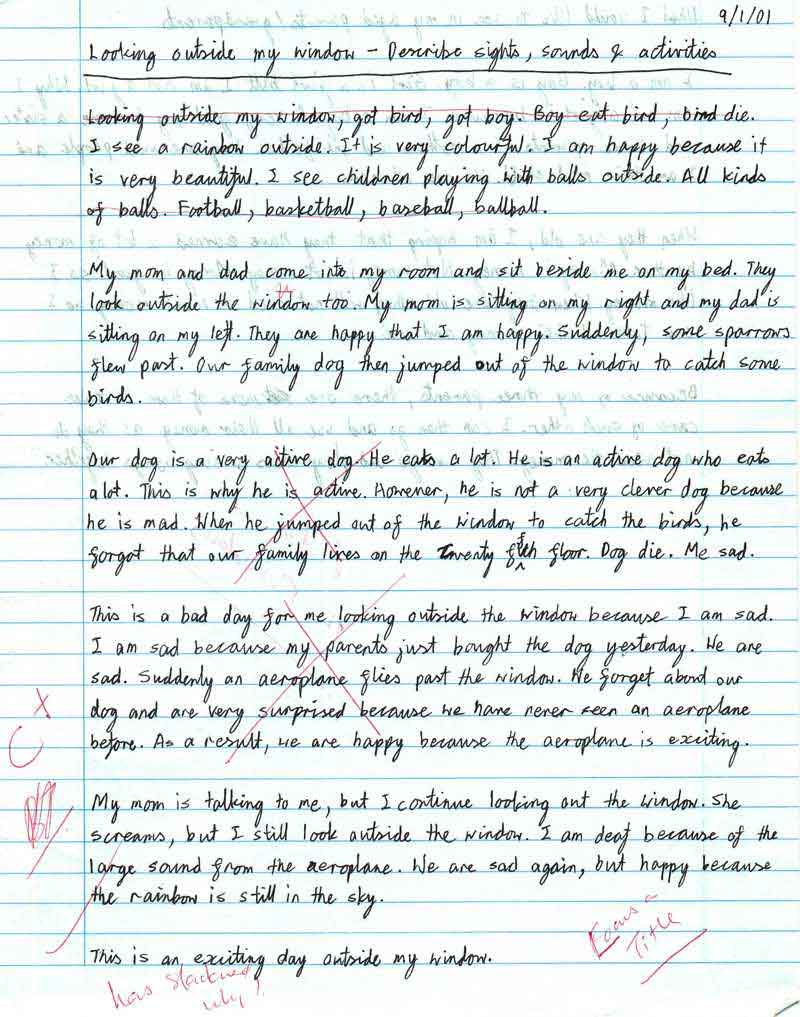 9/1/01
Looking outside my window - Describe sights, sounds & activities
Looking outside my window, got bird, got boy. Boy eat bird, bird die.
I see a rainbow outside. It is very colourful. I am happy because it
is very beautiful. I see children playing with balls outside. All kinds
of balls. Football, basketball, baseball, ballball.
My mom and dad come into my room and sit beside me on my bed. They
look outside the window too. My mom is sitting on my right and my dad is
sitting on my left. They are happy that I am happy. Suddenly, some sparrows
flew past. Our family dog then jumped out of the window to catch some
birds.
Our dog is a very active dog. He eats a lot. He is an active dog who eats
a lot. This is why he is active. However, he is not a very clever dog because
he is mad. When he jumped out of the window to catch the birds, he
forgot that our family lives on the Twenty fifth floor. Dog die. Me sad.
This is a bad day for me looking outside the window because I am sad.
I am sad because my parents just bought the dog yesterday. We are
sad. Suddenly an aeroplane flies past the window. We forget about our
dog and are very surprised because we have never seen an aeroplane
before. As a result, we are happy because the aeroplane is exciting.
C+
My mom is talking to me, but I continue looking out the window. She
screams, but I still look outside the window. I am deaf because of the
large sound from the aeroplane. We are sad again, but happy because
the rainbow is still in the sky.
This is an exciting day outside my window.
Title
has
why?